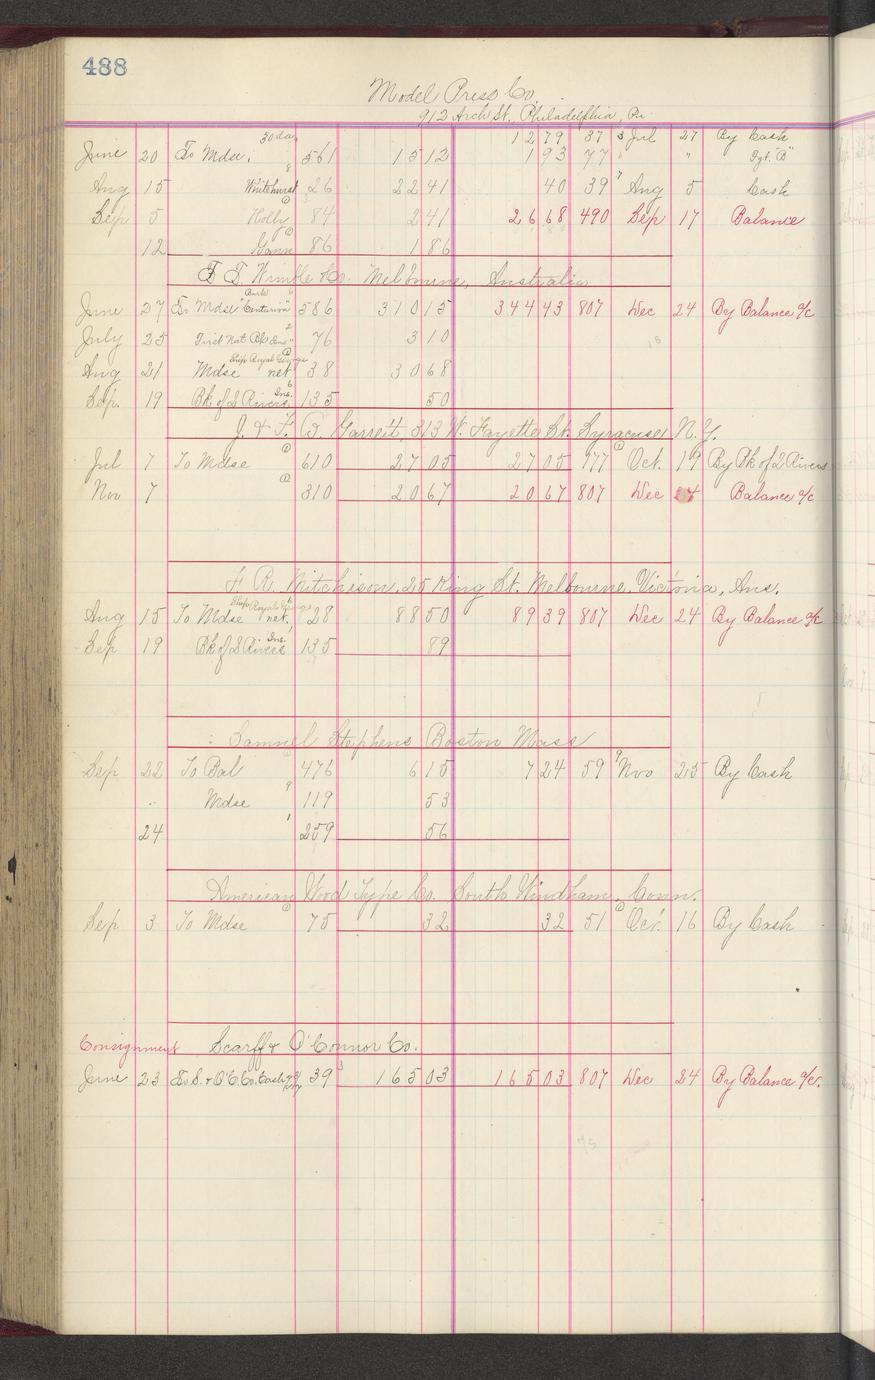 488
Model Press Co.
912 Arch St. Philadelphia, Pa
30 da. 12 79 37 3 Jul 27 By Cash
June 20 To Mdse. 561 15 12 193 77 " "
Aug 15 Whitehurst 26 22 41 40 39 7 Aug 5 Cash
Sep 5 Holly 84 2 41 26 68 490 Sep 17 Balance
12 Gann 86 1 86
F. T. Wimble & Co. Melbourne, Australia
June 27 To Mdse "Centurion" 586 310 15 344 43 807 Dec 24 By Balance a/c
July 25 First Nat Bk 76 3 10
Ship Royal George
Aug 21 Mdse net 38 30 68
Sep. 19 Bk of 2 Rivers Ins. 135 50
J. & F. B. Garrett, 313 W. Fayette St. Syracuse, N.Y.
Jul 7 To Mdse 610 27 05 27 05 777 Oct. 19 By Bk of 2 Rivers
Nov 7 310 20 67 20 67 807 Dec 24 Balance a/c
F. R. Mitchison, 25 King St. Melbourne, Victoria, Aus.
Ship Royal George
Aug 15 To Mdse net. 28 88 50 89 39 807 Dec 24 By Balance a/c
Sep 19 Bk of 2 Rivers Ins. 135 89
Samuel Stephens Boston Mass
Sep 22 To Bal 476 6 15 7 24 59 9 Nov 25 By Cash
" Mdse 9 119 53
24 1 259 56
American Wood Type Co. South Windham, Conn.
Sep 3 To Mdse 75 32 32 51 Oct. 16 By Cash
Consignment Scarff & O'Connor Co.
June 23 To S. & O'C Co. 39 3 165 03 165 03 807 Dec 24 By Balance a/c.